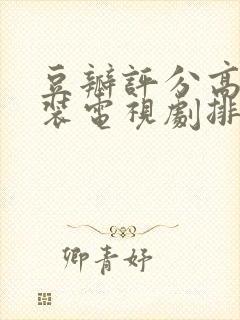 豆瓣評分高
裝電視劇排
卿青妤